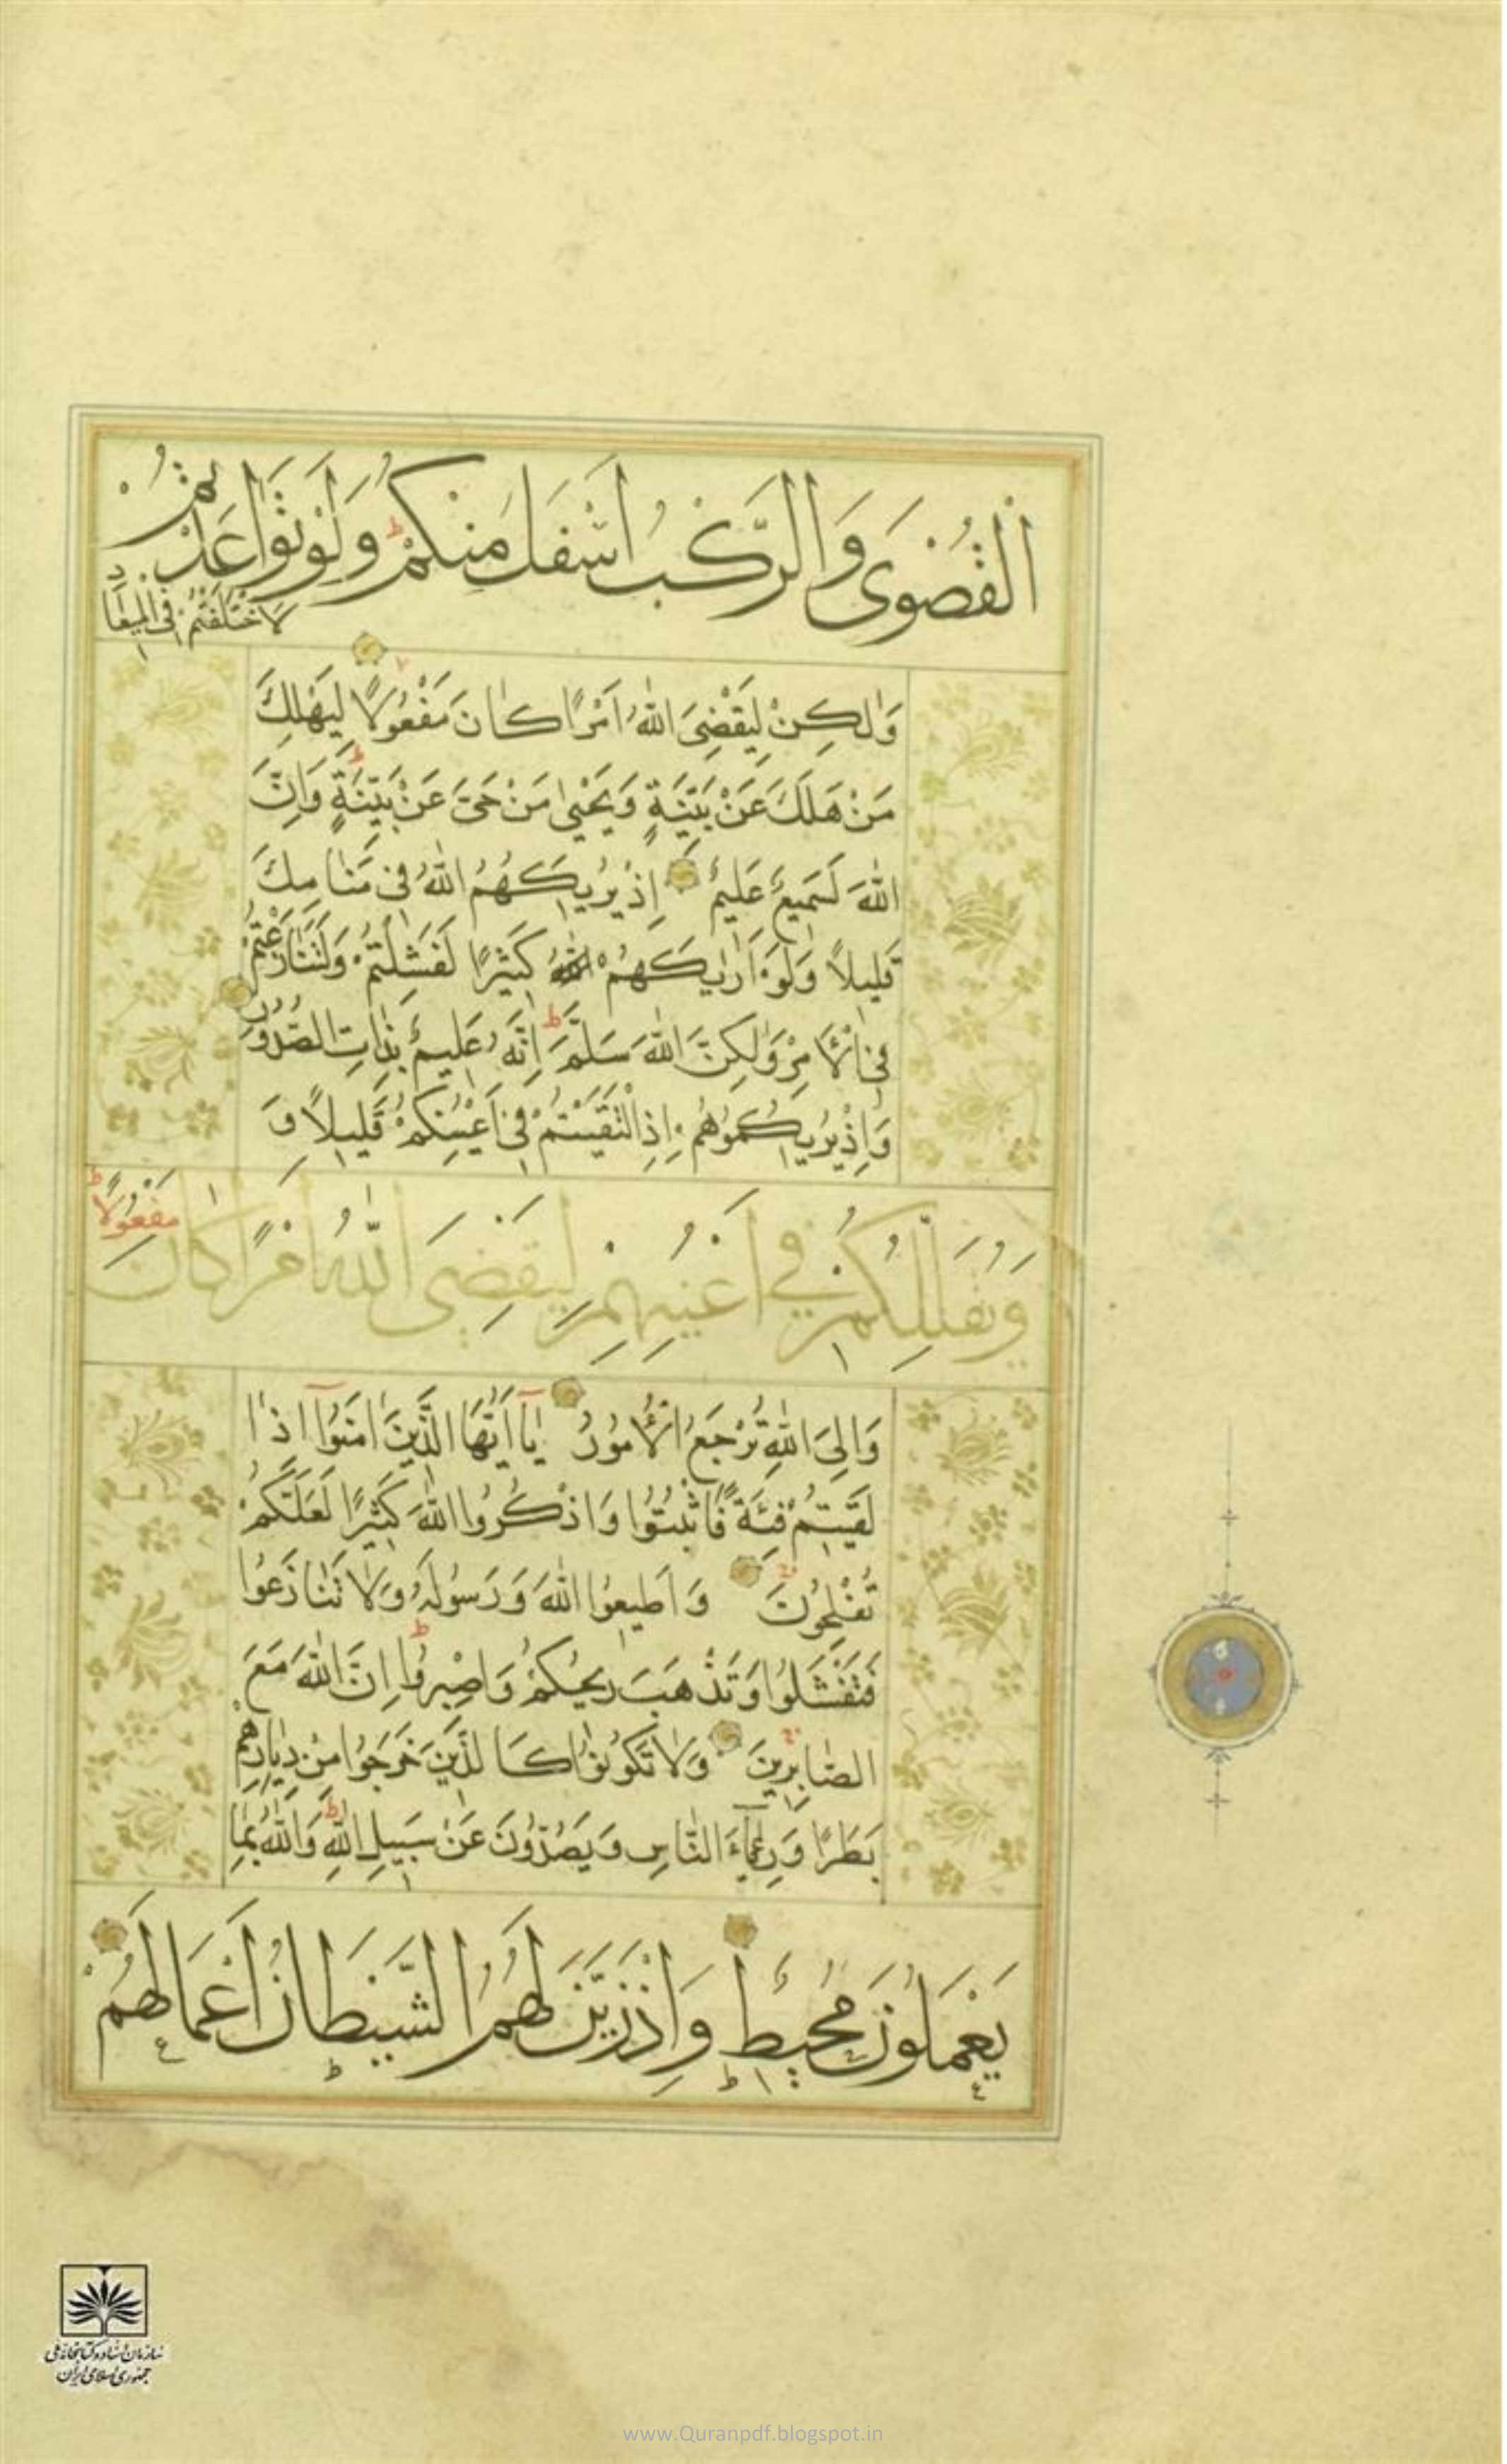 الْقُصْوٰى وَالرَّكْبُ اَسْفَلَ مِنْكُمْ ط وَلَوْ تَوَاعَدْتُمْ
لَاخْتَلَفْتُمْ فِى الْمِيعَادِ
وَلٰكِنْ لِيَقْضِىَ اللّٰهُ اَمْرًا كَانَ مَفْعُولًا لِيَهْلِكَ
مَنْ هَلَكَ عَنْ بَيِّنَةٍ وَيَحْيٰى مَنْ حَىَّ عَنْ بَيِّنَةٍ ط وَاِنَّ
اللّٰهَ لَسَمِيعٌ عَلِيمٌ اِذْ يُرِيكَهُمُ اللّٰهُ فِى مَنَامِكَ
قَلِيلًا وَلَوْ اَرٰيكَهُمْ اللّٰهُ كَثِيرًا لَفَشِلْتُمْ وَلَتَنَازَعْتُمْ
فِى الْاَمْرِ وَلٰكِنَّ اللّٰهَ سَلَّمَ ط اِنَّهُ عَلِيمٌ بِذَاتِ الصُّدُورِ
وَاِذْ يُرِيكُمُوهُمْ اِذِ الْتَقَيْتُمْ فِى اَعْيُنِكُمْ قَلِيلًا وَ
وَيُقَلِّلُكُمْ فِى اَعْيُنِهِمْ لِيَقْضِىَ اللّٰهُ اَمْرًا كَانَ
مَفْعُولًا ط
وَاِلَى اللّٰهِ تُرْجَعُ الْاُمُورُ يَآ اَيُّهَا الَّذِينَ اٰمَنُوٓا اِذَا
لَقِيتُمْ فِئَةً فَاثْبُتُوا وَاذْكُرُوا اللّٰهَ كَثِيرًا لَعَلَّكُمْ
تُفْلِحُونَ وَاَطِيعُوا اللّٰهَ وَرَسُولَهُ وَلَا تَنَازَعُوا
فَتَفْشَلُوا وَتَذْهَبَ رِيحُكُمْ وَاصْبِرُوا ط اِنَّ اللّٰهَ مَعَ
الصَّابِرِينَ وَلَا تَكُونُوا كَالَّذِينَ خَرَجُوا مِنْ دِيَارِهِمْ
بَطَرًا وَرِئَآءَ النَّاسِ وَيَصُدُّونَ عَنْ سَبِيلِ اللّٰهِ ط وَاللّٰهُ بِمَا
يَعْمَلُونَ مُحِيطٌ وَاِذْ زَيَّنَ لَهُمُ الشَّيْطَانُ اَعْمَالَهُمْ
سازمان اسناد و کتابخانه ملی
جمهوری اسلامی ایران
www.Quranpdf.blogspot.in